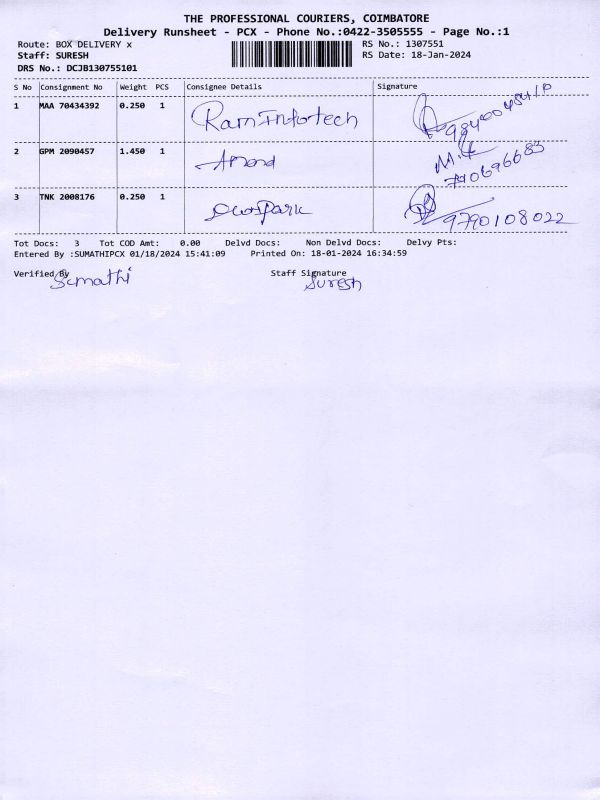 THE PROFESSIONAL COURIERS, COIMBATORE
Delivery Runsheet - PCX - Phone No.:0422-3505555 - Page No.:1
Route: BOX DELIVERY x RS No.: 1307551
Staff: SURESH RS Date: 18-Jan-2024
DRS No.: DCJB130755101
S No Consignment No Weight PCS Consignee Details Signature
1 MAA 70434392 0.250 1 Ram Infotech
2 GPM 2090457 1.450 1
3 TNK 2008176 0.250 1 9790108022
Tot Docs: 3 Tot COD Amt: 0.00 Delvd Docs: Non Delvd Docs: Delvy Pts:
Entered By :SUMATHIPCX 01/18/2024 15:41:09 Printed On: 18-01-2024 16:34:59
Verified By Sumathi Staff Signature Suresh